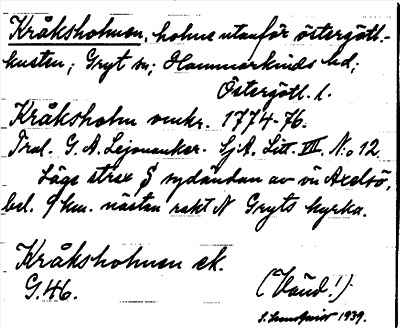 Kråksholmen, holme utanför östergötl.-
kusten; Gryt sn; Hammarkinds hd;
Östergötl. l.
Kråksholm omkr. 1774-76.
Tral. G. A. Lejonanker. SjA. Litt. VIII, No 12.
Läge strax S sydändan av ön Axelsö,
bel. 9 km. nästan rakt N Gryts kyrka.
Kråksholmen ek.
G.46.
(Vänd!)
S. Lundqvist 1939.